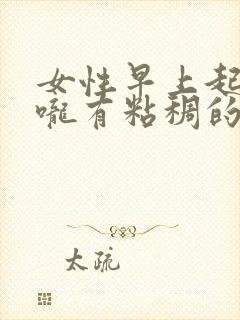 女性早上起
嚨有粘稠的
太疏